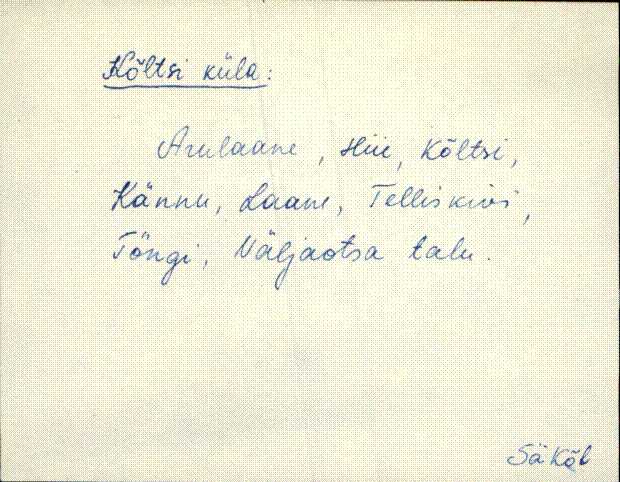 Kõltsi küla:
Arulaane, Hiie, Kõltsi,
Kännu, Laane, Telliskivi,
Töngi, Näljaotsa talu.
SäKõl